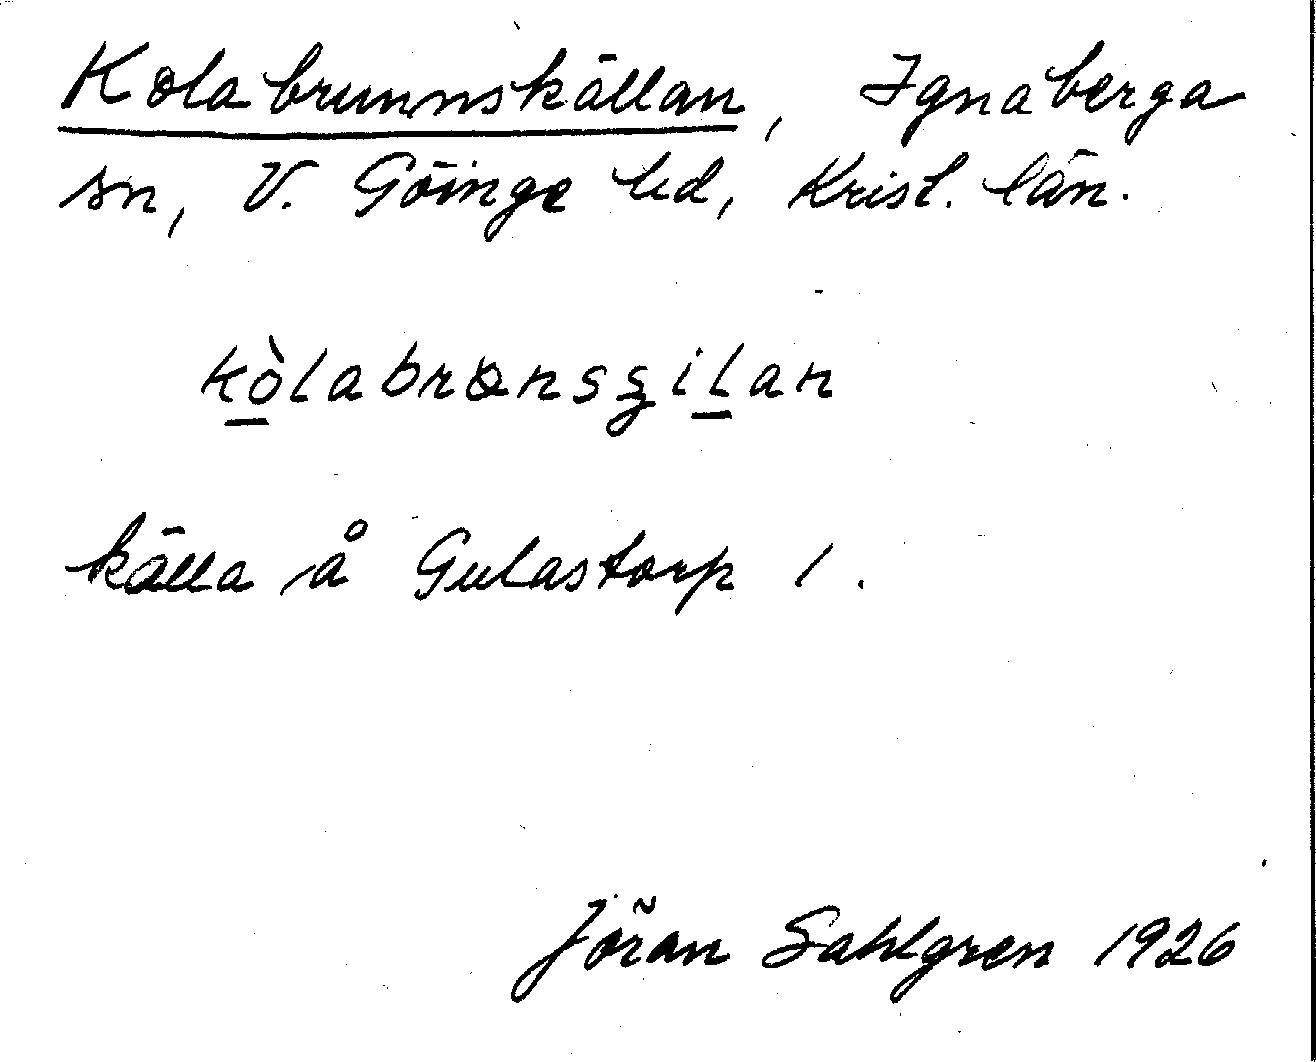 Kolabrunnskällan, Ignaberga
sn, V. Göinge hd, Krist. län.
kòlabronsʂilan
källa å Gulastorp 1.
Jöran Sahlgren 1926